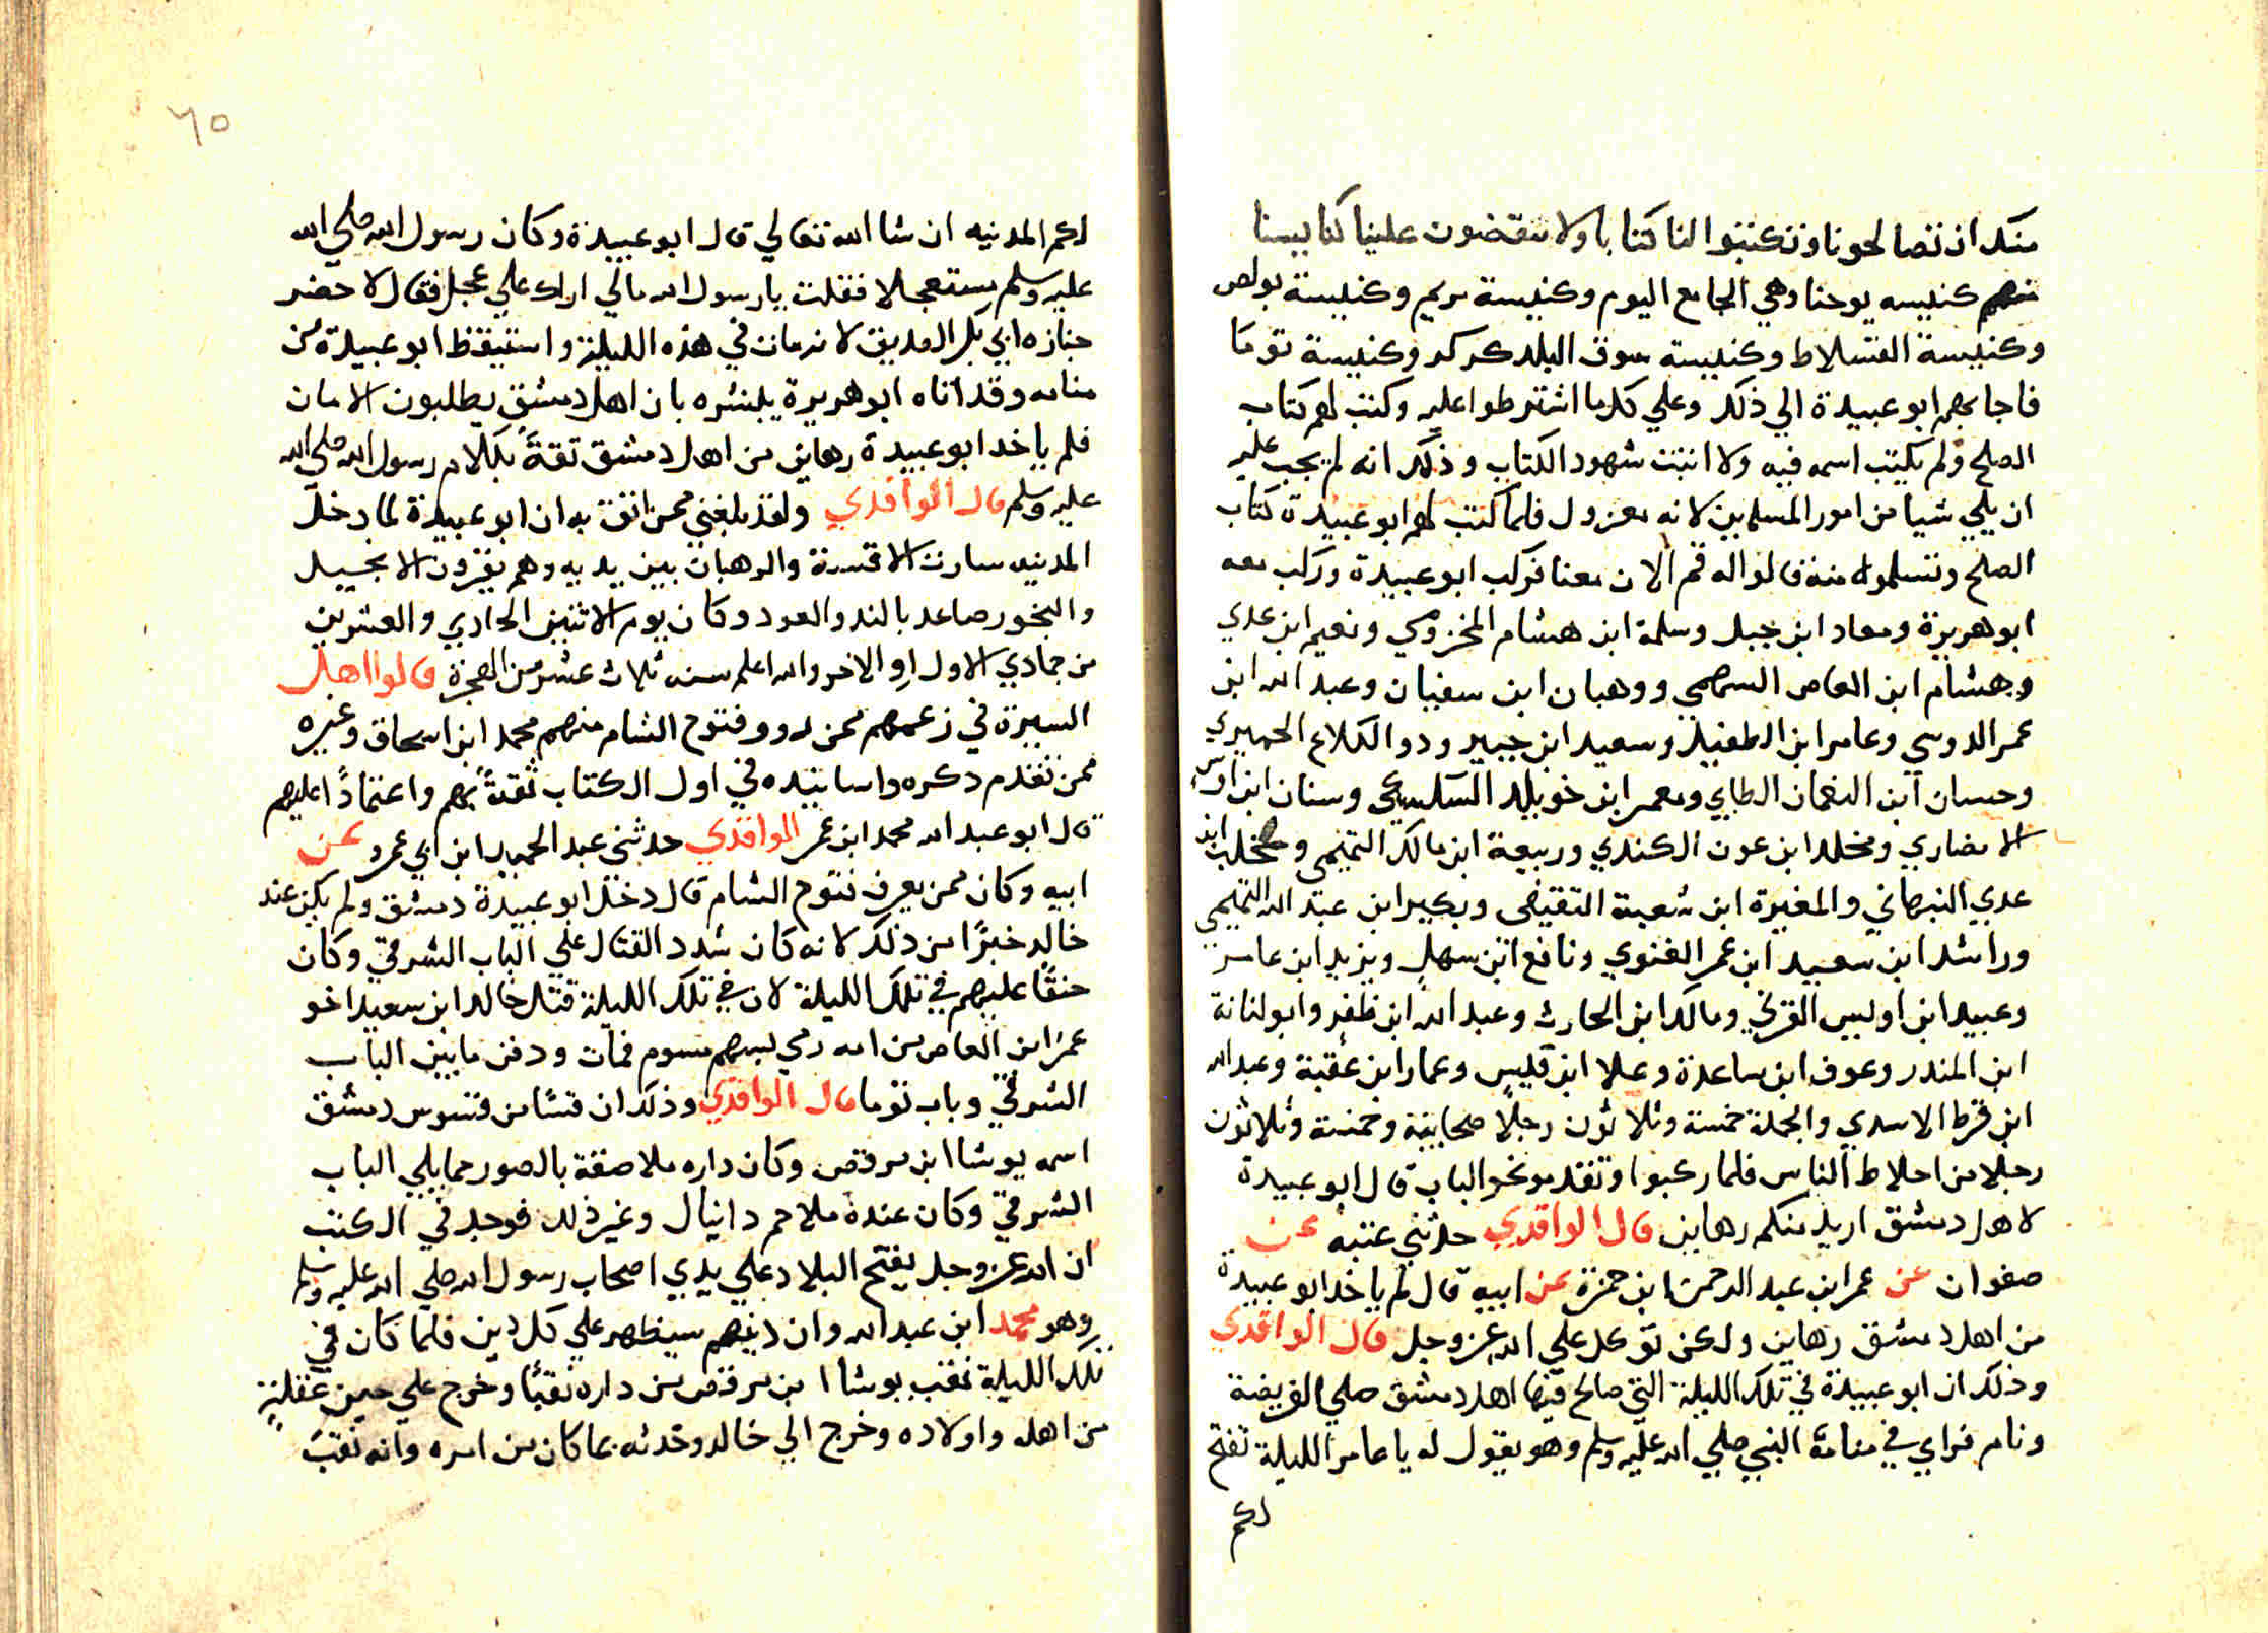 منك ان تصالحونا وتكتبوا لنا كتابا ولا تنقضون علينا كنايسنا
منهم كنيسه يوحنا وهي الجامع اليوم وكنيسة مريم وكنيسة بولص
وكنيسة القسلاط وكنيسة سوق البلد كركر وكنيسة توما
فاجابهم ابو عبيدة الي ذلك وعلي كل ما اشترطوا عليه وكتب لهم كتاب
الصلح ولم يكتب اسمه فيه ولا اثبت شهود الكتاب وذلك انه لم يجب عليه
ان يلي شيا من امور المسلمين لانه معزول فلما كتب لهم ابو عبيدة كتاب
الصلح وتسلموا منه قالوا له قم الان معنا فركب ابو عبيدة وركب معه
ابو هريرة ومعاد ابن جبل وسلمة ابن هشام المخزومي ونعيم ابن عدي
وهشام ابن العاص السهمي ووهبان ابن سفيان وعبد الله ابن
عمر الدوسي وعامر ابن الطفيل وسعيد ابن جبير ودو الكلاع الحميري
وحسان ابن النعمان الطايي ومعمر ابن خويلد السكسكي وسنان ابن اوس
الانصاري ومخلد ابن عون الكندي وربيعة ابن مالك التميمي ومحكم ابن
عدي النبهاني والمغيرة ابن شعبة التقيفي وبكير ابن عبد الله التميمي
وراشد ابن سعيد ابن عمر الغنوي ونافع ابن سهل ويزيد ابن عامر
وعبيد ابن اوليس القرني ومالك ابن الحارث وعبد الله ابن ظفر وابو لنانة
ابن المندر وعوف ابن ساعدة وعلا ابن قيس وعمار ابن عقبة وعبد الله
ابن قرط الاسدي والجملة خمسة وثلاثون رجلا صحابية وخمسة وثلاثون
رجلا من اخلاط الناس فلما ركبوا وتقدمو نحو الباب قال ابو عبيدة
لاهل دمشق اريد منكم رهاين قال الواقدي حدثني عتبه عن
صفوان عن عمر ابن عبد الرحمن ابن حمزة عن ابيه قال لم ياخد ابو عبيدة
من اهل دمشق رهاين ولكن توكل علي الله عز وجل قال الواقدي
وذلك ان ابو عبيدة في تلك الليلة التي صالح فيها اهل دمشق صلي الفريضة
ونام فراي في منامه النبي صلي الله عليه وسلم وهو يقول له يا عامر الليلة تفتح
لكم
٦٥
لكم المدنيه ان شا الله تعالي قال ابو عبيدة وكان رسول الله صلي الله
عليه وسلم مستعجلا فقلت يا رسول الله مالي اراك علي عجل فقال لا حضر
جنازه ابي بكر الصديق لانه مات في هذه الليلة واستيقظ ابو عبيدة من
منامه وقد اتاه ابو هريرة يبشره بان اهل دمشق يطلبون الامان
فلم ياخد ابو عبيدة رهاين من اهل دمشق تقةً بكلام رسول الله صلي الله
عليه وسلم قال الواقدي ولقد بلغني ممن اثق به ان ابو عبيدة لما دخل
المدنيه سارت الاقسة والرهبان بين يديه وهم يقرون الانجيل
والبخور صاعد بالند والعود وكان يوم الاثنين الحادي والعشرين
من جمادي الاول او الاخر والله اعلم سنه ثلاث عشر من الهجرة قالوا اهل
السيرة في زعمهم ممن رووا فتوح الشام منهم محمد ابن اسحاق وغيره
ممن تقدم دكره واسانيده في اول الكتاب ثقةً بهم واعتماداً عليهم
قال ابو عبد الله محمد ابن عمر الواقدي حدثني عبد الحميد ابن ابي عمرد عن
ابيه وكان ممن يعرف فتوح الشام قال دخل ابو عبيدة دمشق ولم يكن عند
خالد خبرًا من ذلك لانه كان شدد القتال علي الباب الشرقي وكان
حنقًا عليهم في تلك الليلة لان في تلك الليلة قتل خالد ابن سعيد اخو
عمر ابن العاص من امه رمي بسهم مسموم فمات ودفن ما بين الباب
الشرقي وباب توما قال الواقدي وذلك ان قسا من قسوس دمشق
اسمه يوشا ابن مرقص وكان داره ملاصقة بالصور مما يلي الباب
الشرقي وكان عنده ملاحم دانيال وغير ذلك فوجد في الكتب
ان الله عز وجل يفتح البلاد علي يدي اصحاب رسول الله صلي الله عليه وسلم
وهو محمد ابن عبد الله وان دينهم سيظهر علي كل دين فلما كان في
تلك الليلة نقب يوشا ابن مرقص من داره نقبًا وخرج علي حين غفلةٍ
من اهله واولاده وخرج الي خالد وحدثه بما كان من امره وانه نقب